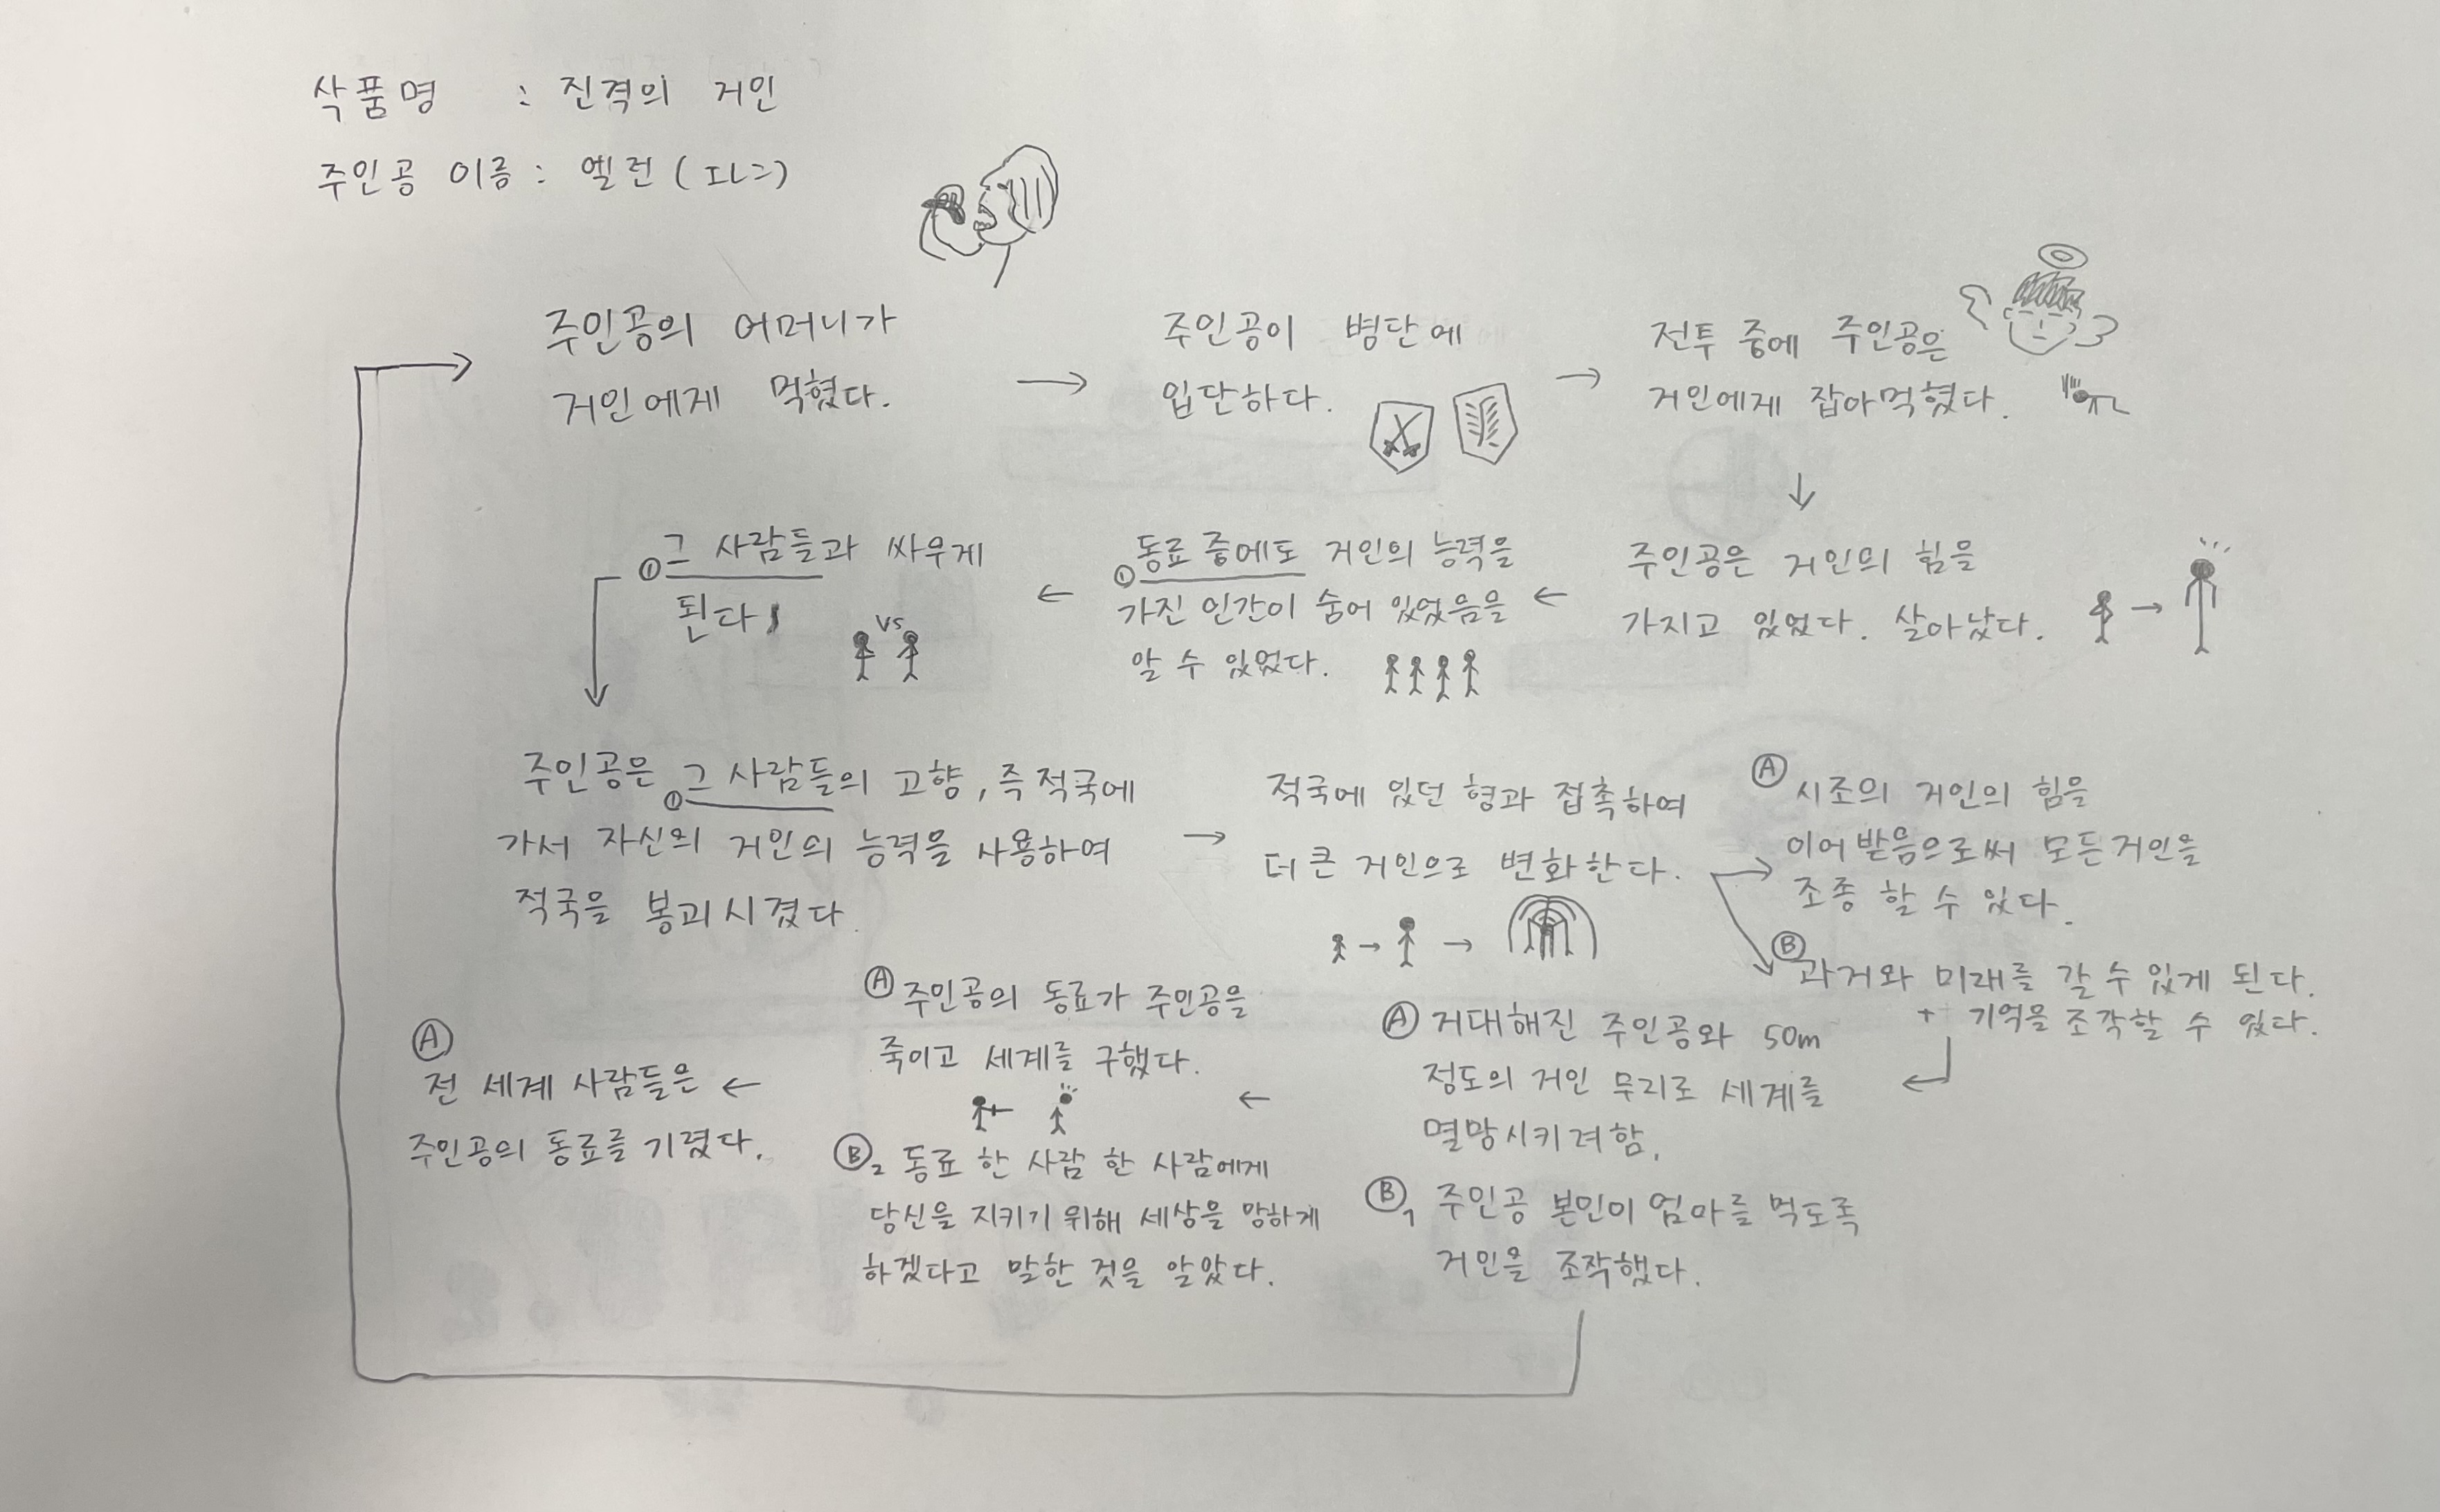 작품명 : 진격의 거인
주인공 이름 : 엘런 (エレン)
주인공의 어머니가
거인에게 먹혔다.
주인공이 병단에
입단하다.
전투 중에 주인공은
거인에게 잡아먹혔다.
주인공은 거인의 힘을
가지고 있었다. 살아났다.
① 동료 중에도 거인의 능력을
가진 인간이 숨어 있었음을
알 수 있었다.
① 그 사람들과 싸우게
된다
VS
주인공은 ① 그 사람들의 고향, 즉 적국에
가서 자신의 거인의 능력을 사용하여
적국을 붕괴시켰다.
적국에 있던 형과 접촉하여
더 큰 거인으로 변화한다.
Ⓐ 시조의 거인의 힘을
이어받음으로써 모든거인을
조종 할 수 있다.
Ⓑ 과거와 미래를 갈 수 있게 된다.
+ 기억을 조작할 수 있다.
Ⓐ 거대해진 주인공와 50m
정도의 거인 무리로 세계를
멸망시키려함.
Ⓑ1 주인공 본인이 엄마를 먹도록
거인을 조작했다.
Ⓐ 주인공의 동료가 주인공을
죽이고 세계를 구했다.
Ⓑ2 동료 한 사람 한 사람에게
당신을 지키기 위해 세상을 망하게
하겠다고 말한 것을 알았다.
Ⓐ
전 세계 사람들은
주인공의 동료를 기렸다.